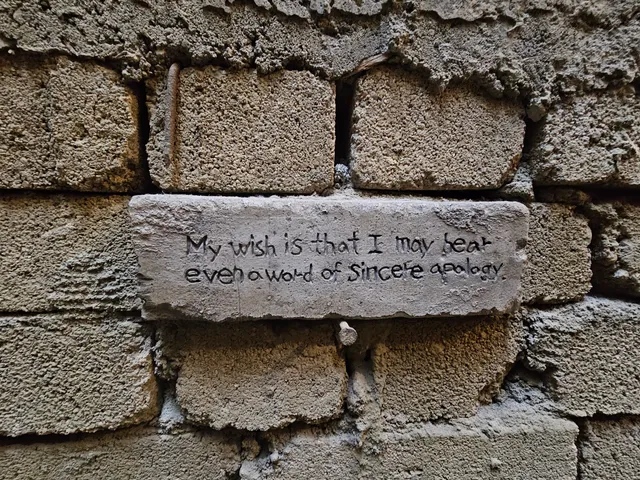 My wish is that I may hear
even a word of sincere apology.